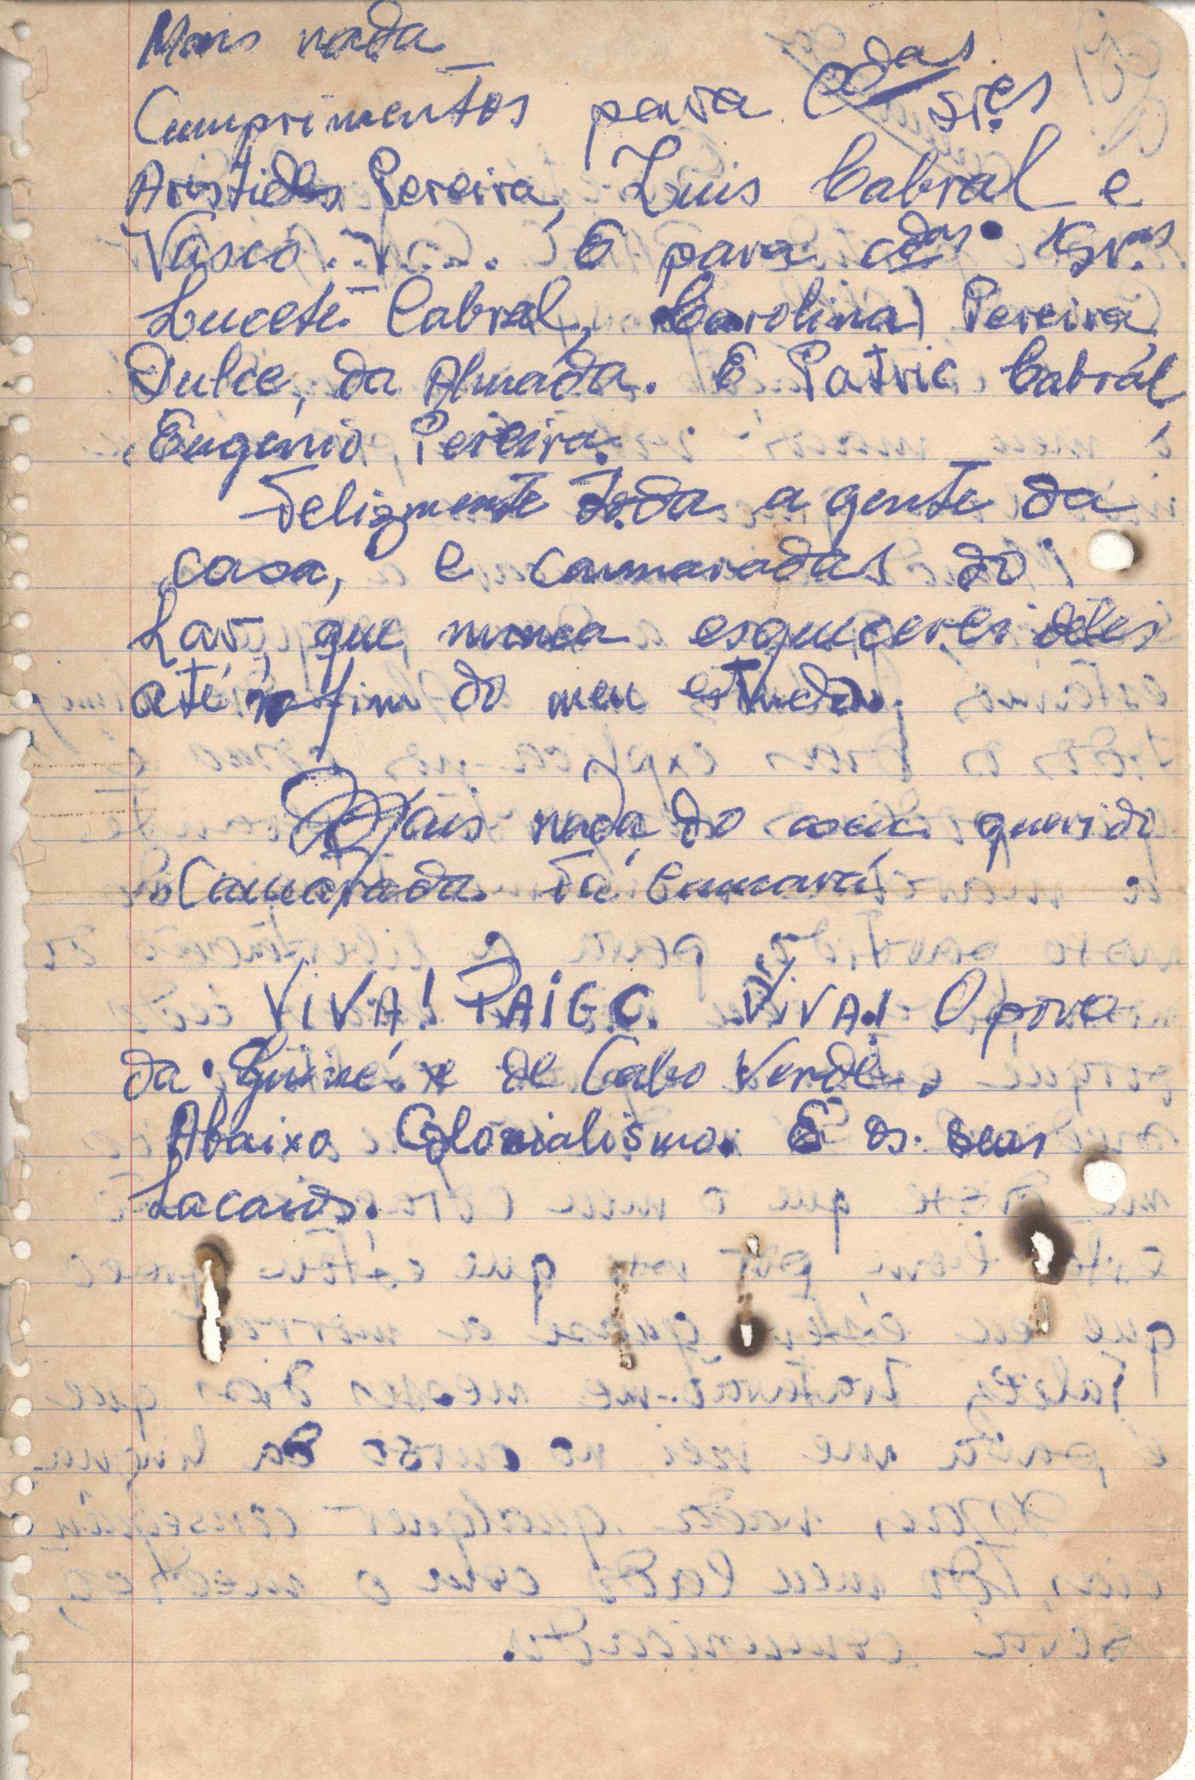 Mais nada
Cumprimentos para Cdas sr.es
Aristides Pereira, Luis Cabral e
Vasco. V.... E para cdas Sr.as
Lucete Cabral, Carolina Pereira
Dulce, da Almada. E Patric Cabral,
Eugenio Pereira.
Felizmente toda a gente da
casa, e camaradas do
Lar, que nunca esquecerei deles
até fim do meu estudo.
Mais nada do querido
Camarada Tá Camará
VIVA! PAIGC. VIVA! O povo
da Guiné e de Cabo Verde,
Abaixo Colonialismo. E os seus
Lacaios.